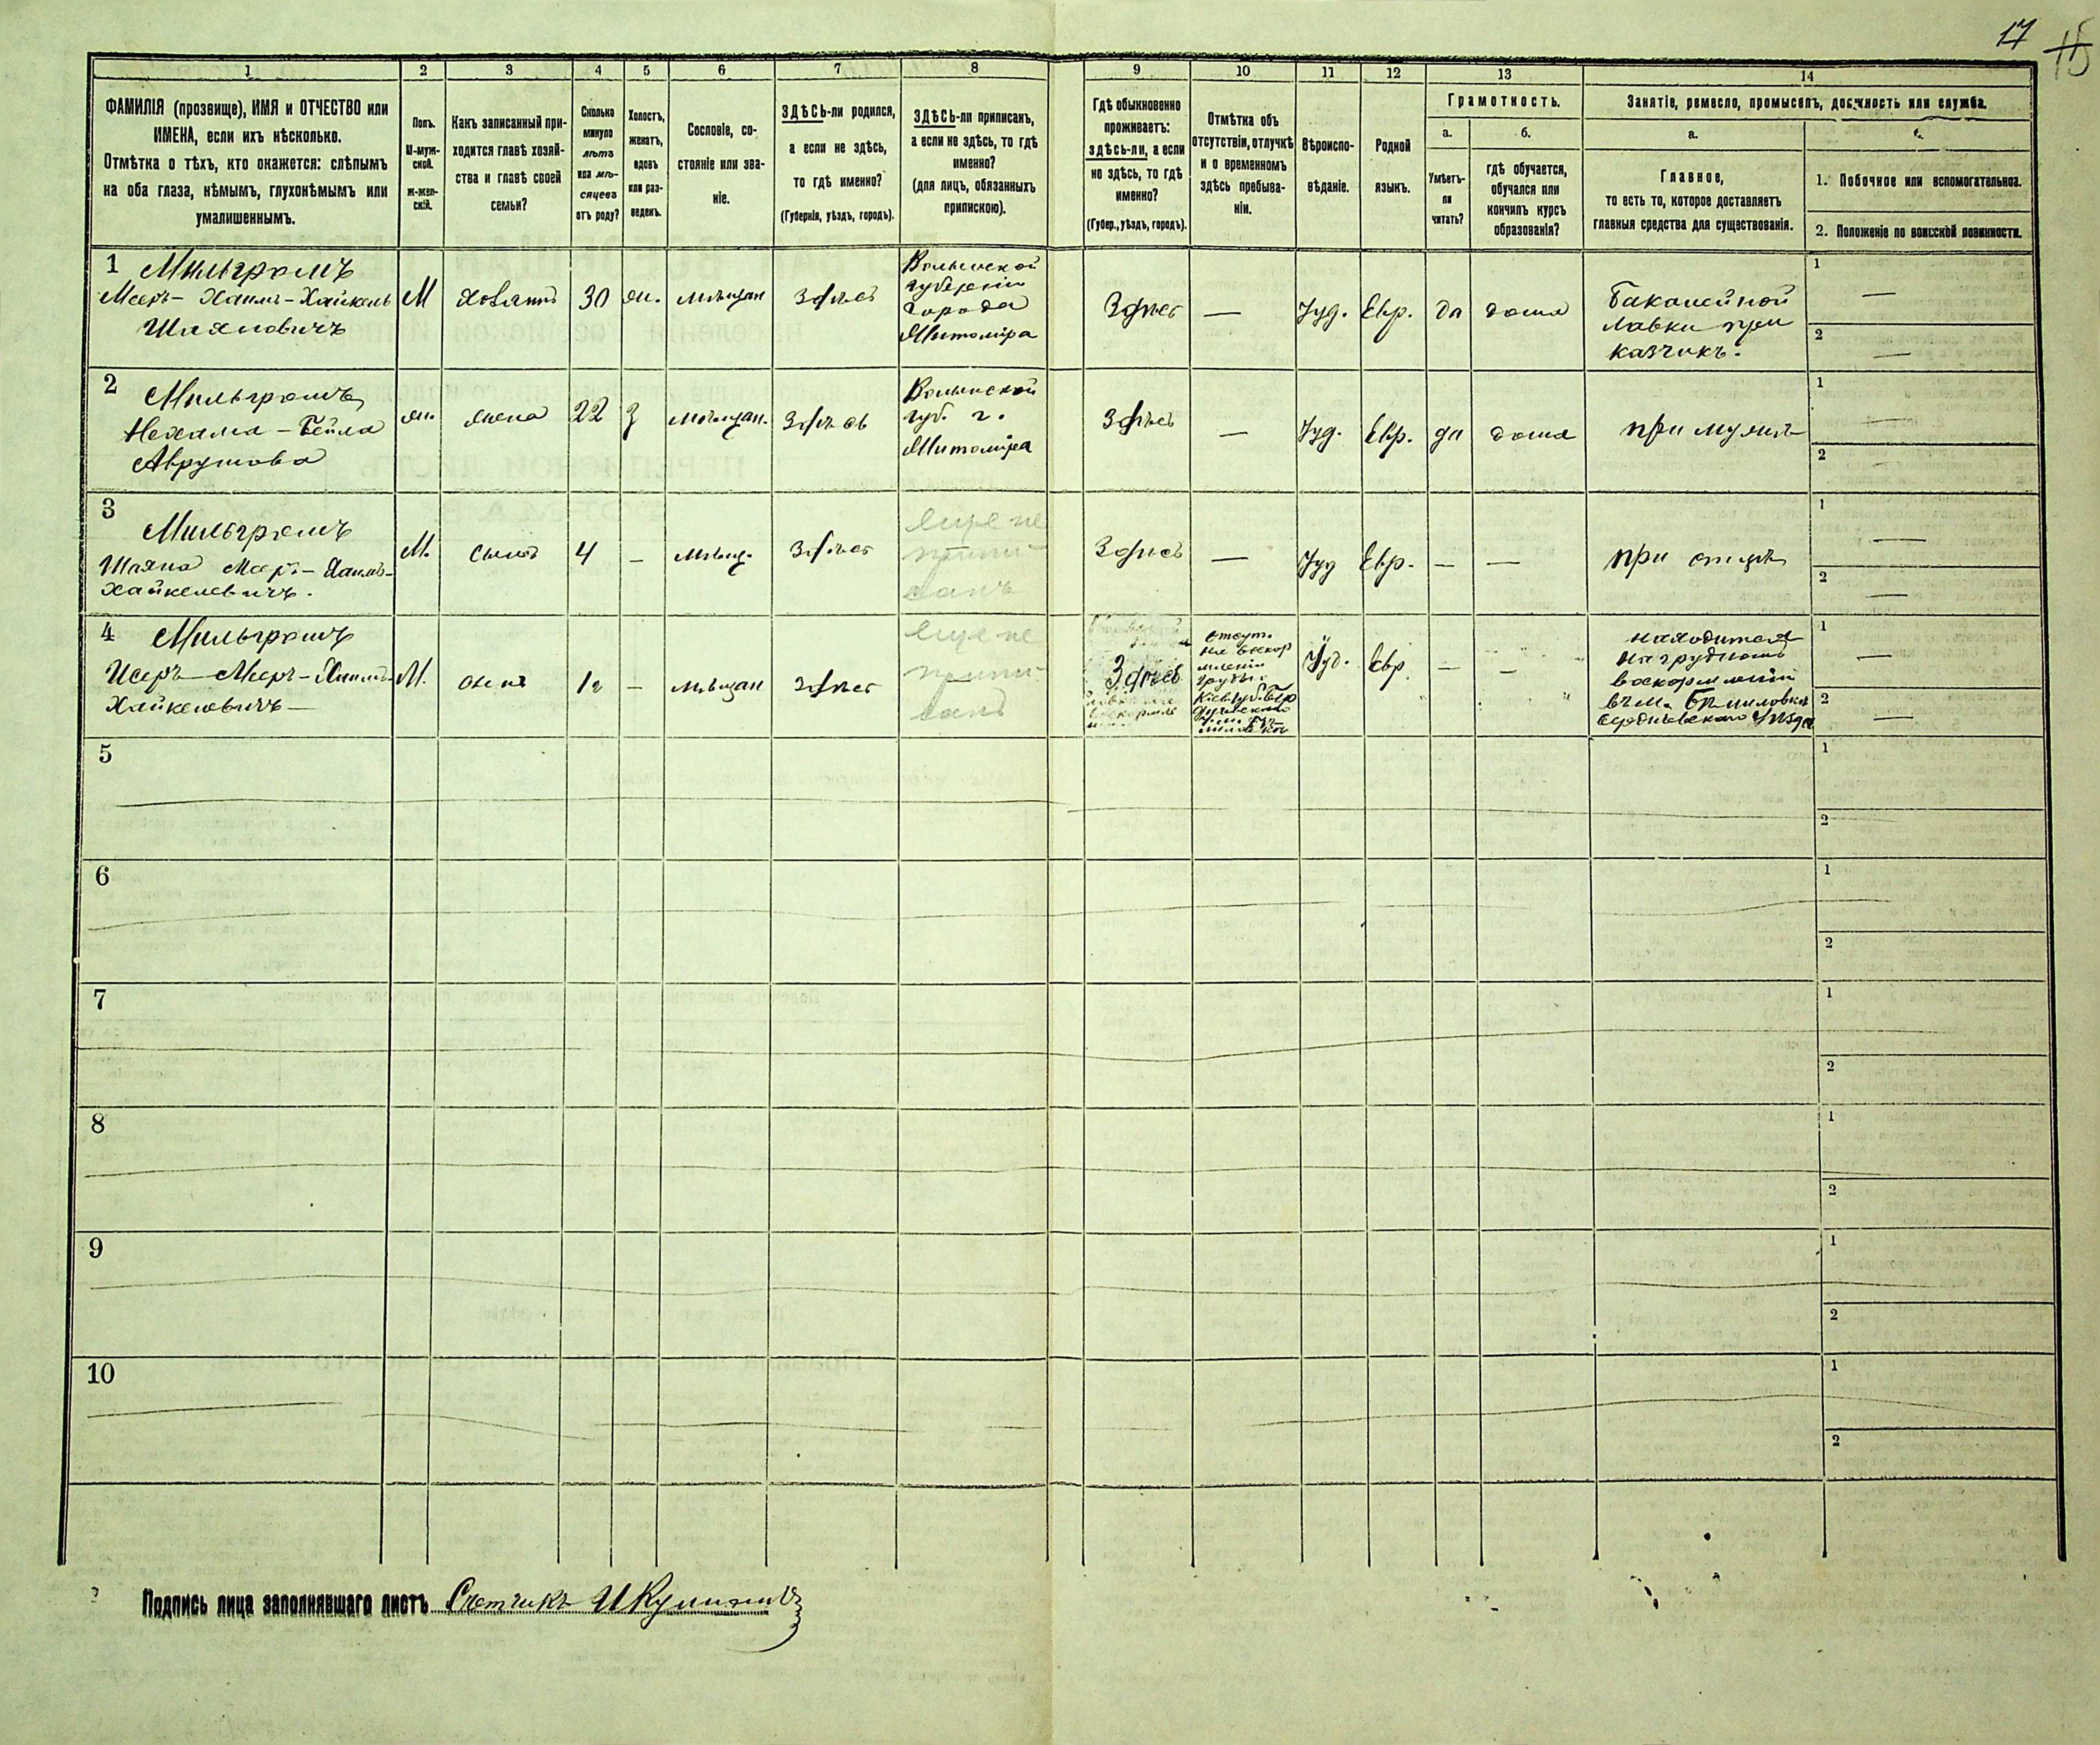 17
15
1 2 3 4 5 6 7 8 9 10 11 12 13 14
ФАМИЛІЯ (прозвище), ИМЯ и ОТЧЕСТВО или
ИМЕНА, если ихъ нѣсколько.
Отмѣтка о тѣхъ, кто окажется: слѣпымъ
на оба глаза, нѣмымъ, глухонѣмымъ или
умалишеннымъ.
Полъ.
М-муж-
ской.
ж-жен-
скій.
Какъ записанный при-
ходится главѣ хозяй-
ства и главѣ своей
семьи?
Сколько
минуло
лѣтъ
или мѣ-
сяцевъ
отъ роду?
Холостъ,
женатъ,
вдовъ
или раз-
веденъ.
Сословіе, со-
стояніе или зва-
ніе.
ЗДѢСЬ-ли родился,
а если не здѣсь,
то гдѣ именно?
(Губернія, уѣздъ, городъ).
ЗДѢСЬ-ли приписанъ,
а если не здѣсь, то гдѣ
именно?
(для лицъ, обязанныхъ
припиского).
Гдѣ обыкновенно
проживаетъ:
здѣсь-ли, а если
не здѣсь, то гдѣ
именно?
(Губер., уѣздъ, городъ).
Отмѣтка объ
отсутствіи, отлучкѣ
и о временномъ
здѣсь пребыва-
ніи.
Вѣроиспо-
вѣданіе.
Родной
языкъ.
Грамотность.
а.
Умѣетъ-
ли
читать?
б.
гдѣ обучается,
обучался или
кончилъ курсъ
образованія?
Занятіе, ремесло, промыселъ, должность или служба.
а.
Главное,
то есть то, которое доставляетъ
главныя средства для существованія.
1. Побочное или вспомогательное.
2. Положеніе по воинской повинности.
1 Мильгромъ
Мееръ-Хаимъ-Хайкель
Шаяновичъ
М
хозяинъ
30
жн.
мѣщан
Здѣсь
Волынской
губерніи
города
Житоміра
Здѣсь
—
Іуд.
Евр.
да
дома
Бакалейной
лавки при
казчикъ.
1 —
2 —
2 Мильгромъ
Нехама-Бейла
Аврумова
жн.
жена
22
З
мѣщан.
Здѣсь
Волынской
губ. г.
Житоміра
Здѣсь
—
Іуд.
Евр.
да
дома
при мужѣ
1 —
2 —
3 Мильгромъ
Шаяна Меер.-Хаимъ-
Хайкелевичъ.
М.
сынъ
4
—
мѣщ.
Здѣсь
еще не
припи-
санъ
Здѣсь
—
Іуд
Евр.
—
—
при отцѣ
1 —
2 —
4 Мильгромъ
Исеръ-Мееръ-Хаимъ-
Хайкелевичъ
М.
сынъ
1г
—
мѣщан
Здѣсь
еще не
припи-
санъ
Здѣсь
отсут.
на вскор
мленіи
грудь.
Іуд.
Евр.
—
—
находится
на грудномъ
вскормленіи
въ м.
Бердичевскаго уѣзда
1 —
2 —
5
1
2
6
1
2
7
1
2
8
1
2
9
1
2
10
1
2
Подпись лица заполнявшаго листъ Счетчикъ И